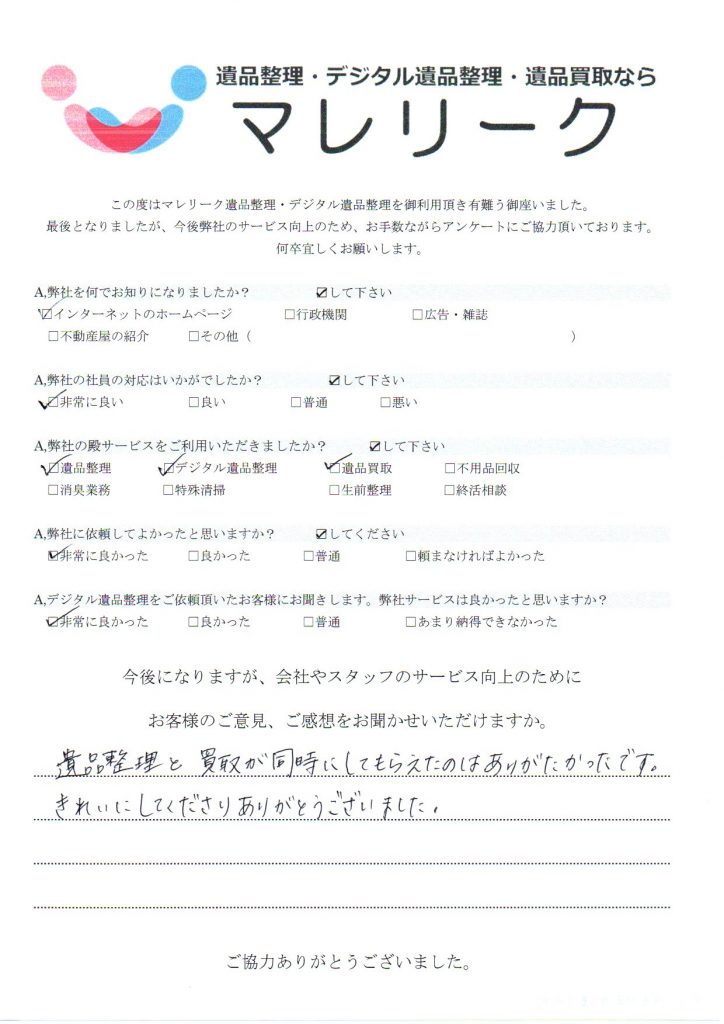 遺品整理・デジタル遺品整理・遺品買取なら
マレリーク
この度はマレリーク遺品整理・デジタル遺品整理を御利用頂き有難う御座いました。
最後となりましたが、今後弊社のサービス向上のため、お手数ながらアンケートにご協力頂いております。
何卒宜しくお願いします。
A,弊社を何でお知りになりましたか？ ☑して下さい
☑インターネットのホームページ □行政機関 □広告・雑誌
□不動産屋の紹介 □その他（ ）
A,弊社の社員の対応はいかがでしたか？ ☑して下さい
☑非常に良い □良い □普通 □悪い
A,弊社の殿サービスをご利用いただきましたか？ ☑して下さい
☑遺品整理 ☑デジタル遺品整理 ☑遺品買取 □不用品回収
□消臭業務 □特殊清掃 □生前整理 □終活相談
A,弊社に依頼してよかったと思いますか？ ☑してください
☑非常に良かった □良かった □普通 □頼まなければよかった
A,デジタル遺品整理をご依頼頂いたお客様にお聞きします。弊社サービスは良かったと思いますか？
☑非常に良かった □良かった □普通 □あまり納得できなかった
今後になりますが、会社やスタッフのサービス向上のために
お客様のご意見、ご感想をお聞かせいただけますか。
遺品整理と買取が同時にしてもらえたのはありがたかったです。
きれいにしてくださりありがとうございました。
ご協力ありがとうございました。